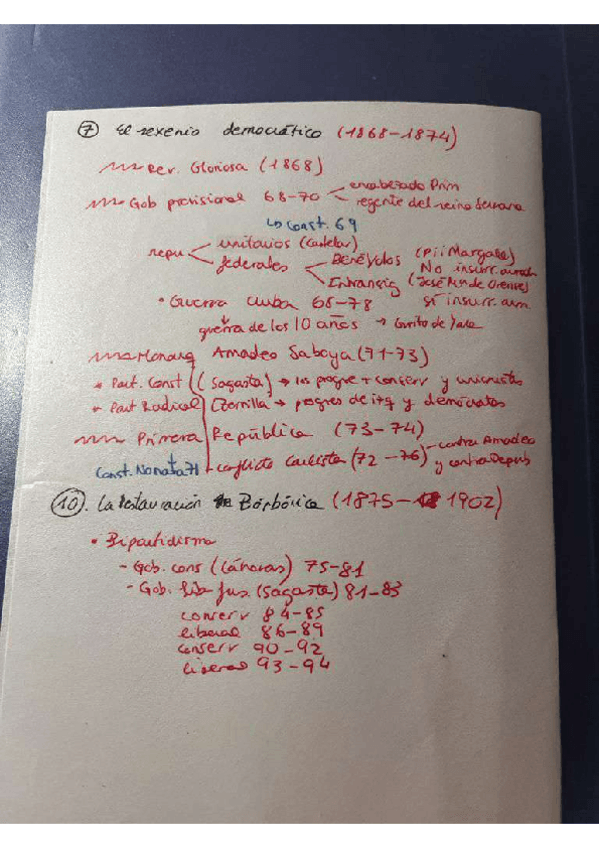 ⑦ El sexenio democrático (1868-1874)
Rev. Gloriosa (1868)
Gob provisional 68-70 encabezado Prim
regente del reino Serrano
↳ Const. 69
repu unitarios (Castelar)
federales Benévolos (Pi i Margall)
No insurr. armada
Intransig (José Mª de Orense)
sí insurr. arm.
• Guerra Cuba 68-78
guerra de los 10 años → Grito de Yara
Monarq Amadeo Saboya (71-73)
* Part. Const (Sagasta) → los progre + conserv y unionistas
* Part Radical Zorrilla → progres de izq y demócratas
Primera República (73-74)
Const. Nonata 71 conflicto carlista (72-76) contra Amadeo
y contra Repub
⑩. La Restauración Borbónica (1875-1902)
• Bipartidismo
- Gob. cons (Cánovas) 75-81
- Gob. lib fus. (Sagasta) 81-83
conserv 84-85
liberal 86-89
conserv 90-92
liberal 93-94